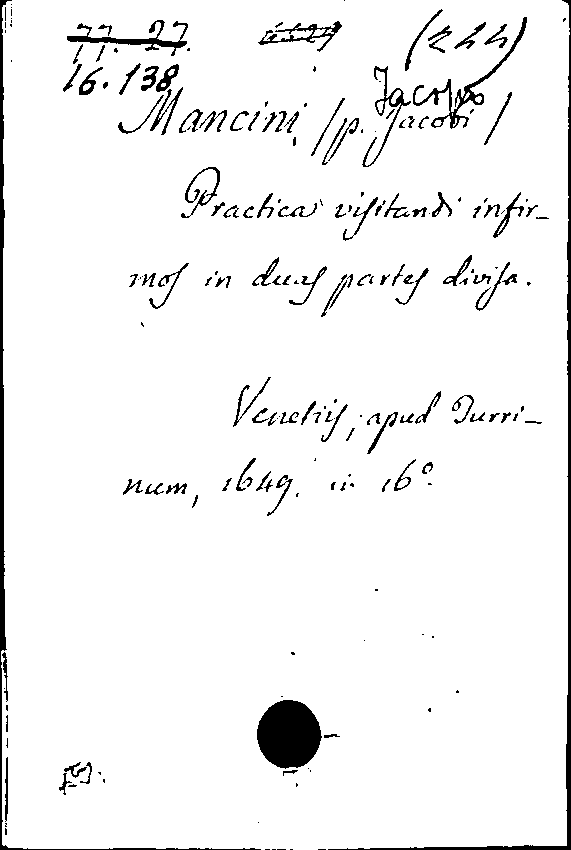 77. 27. (244)
16.138
Jacopo
Mancini /p. Jacobi/
Practica visitandi infir-
mos in duas partes divisa.
Venetiis, apud Turri-
num, 1649. in 16°.